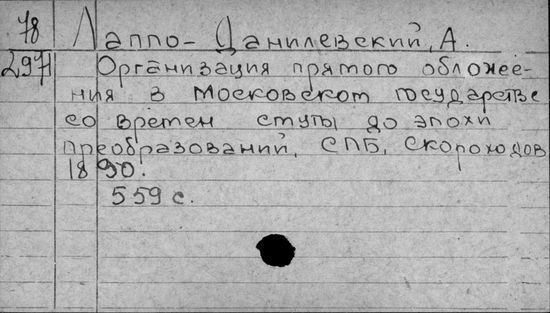 78 Лаппо-Данилевский, А.
2971 Организация прямого обложе-
ния в Московском государстве
со времен смуты до эпохи
преобразований, СПБ, Скороходов
1890.
559 с.